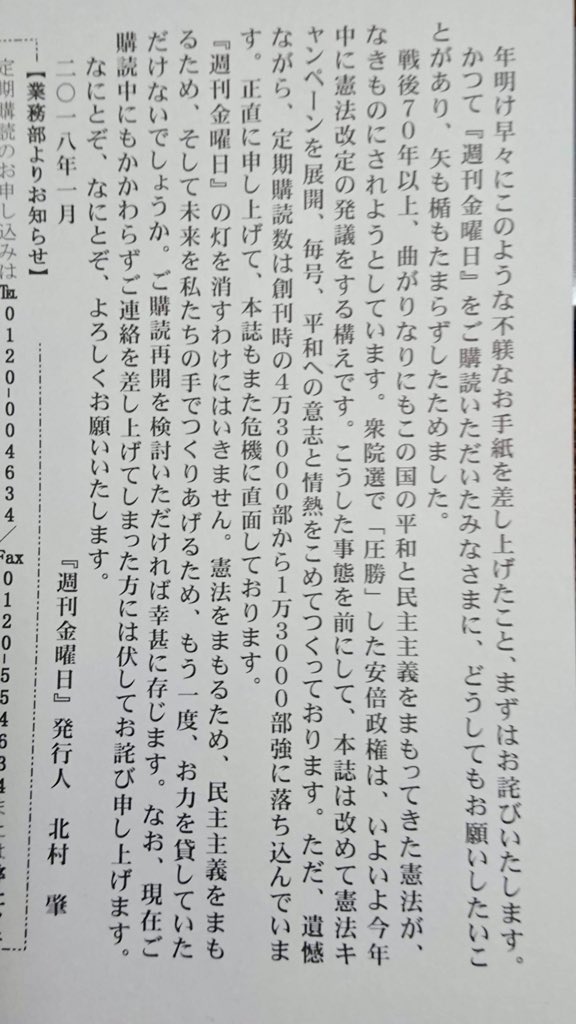 年明け早々にこのような不躾なお手紙を差し上げたこと、まずはお詫びいたします。
かつて『週刊金曜日』をご購読いただいたみなさまに、どうしてもお願いしたいこ
とがあり、矢も楯もたまらずしたためました。
戦後70年以上、曲がりなりにもこの国の平和と民主主義をまもってきた憲法が、
なきものにされようとしています。衆院選で「圧勝」した安倍政権は、いよいよ今年
中に憲法改定の発議をする構えです。こうした事態を前にして、本誌は改めて憲法キ
ャンペーンを展開、毎号、平和への意志と情熱をこめてつくっております。ただ、遺憾
ながら、定期購読数は創刊時の4万3000部から1万3000部強に落ち込んでいま
す。正直に申し上げて、本誌もまた危機に直面しております。
『週刊金曜日』の灯を消すわけにはいきません。憲法をまもるため、民主主義をまも
るため、そして未来を私たちの手でつくりあげるため、もう一度、お力を貸していた
だけないでしょうか。ご購読再開を検討いただければ幸甚に存じます。なお、現在ご
購読中にもかかわらずご連絡を差し上げてしまった方には伏してお詫び申し上げます。
なにとぞ、なにとぞ、よろしくお願いいたします。
二〇一八年一月
『週刊金曜日』発行人 北村 肇
【業務部よりお知らせ】
定期購読のお申し込みは℡0120-004634/Fax0120-554634または